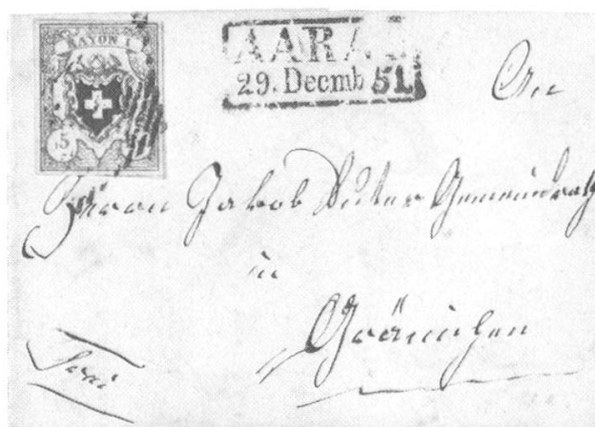 RAYON I.
5
AARA
29. Decmb 51
An
Herrn Jakob Suter Gemeindrath
in
Gränichen